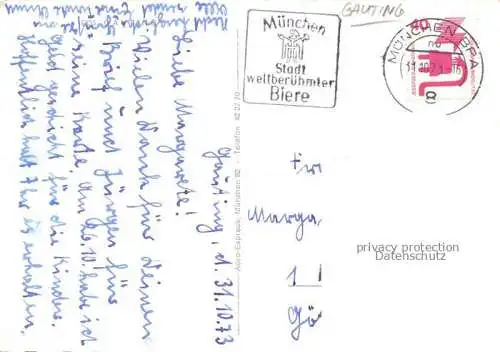 GAUTING
München
Stadt
weltberühmter
Biere
MÜNCHEN BPA
31.10.73-16
8
40
Gauting, d. 31.10.73
Liebe Margarete!
Vielen Dank für Deinen
Brief und Jürgen für
seine Karte. Am 26.10. habe ich
Geld geschickt für die Kinder.
Hoffentlich habt Ihr es erhalten.
Recht herzliche Grüße
Aero-Express, München 82 Telefon
Marga
1
Gö
privacy protection
Datenschutz